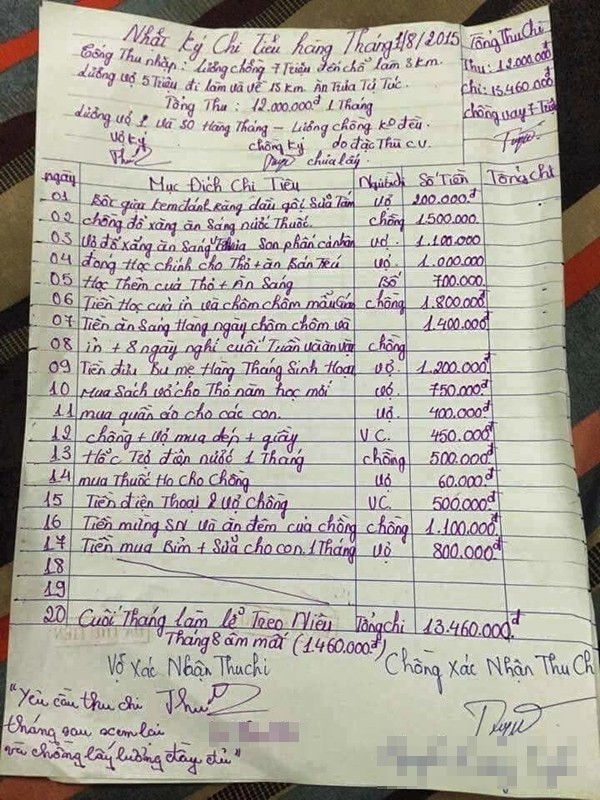 Nhật Ký Chi Tiêu hàng Tháng 1/8/2015
Tổng Thu Chi
Tổng Thu nhập: Lương chồng 7 Triệu đến chỗ làm 8 km.
Thu: 12.000.000đ
Lương vợ 5 Triệu đi làm và về 15 km. Ăn Trưa Tự Túc.
Chi: 13.460.000đ
Tổng Thu: 12.000.000đ 1 Tháng
chồng vay 7 Triệu
Lương vợ 2 và 30 Hàng Tháng - Lương chồng ko đều.
Vợ Ký chồng Ký do đặc Thù C.V.
chưa lấy.
ngày Mục Đích Chi Tiêu Người chi Số Tiền Tổng chi
01 Bột giặt kem đánh Răng dầu gội Sữa Tắm vợ 200.000đ
02 chồng đổ xăng ăn Sáng nước Thuốc. chồng 1.500.000
03 Vợ đổ xăng ăn Sáng Son phấn cá nhân vợ. 1.100.000
04 đóng Học chính cho Thỏ + ăn Bán Trú vợ. 1.000.000
05 Học Thêm của Thỏ + Ăn Sáng Bố 700.000
06 Tiền Học của in và chôm chôm mẫu Giáo chồng 1.800.000
07 Tiền ăn Sang Hàng ngày chôm chôm và 1.400.000
08 in + 8 ngày nghỉ cuối Tuần và ăn vặt chồng
09 Tiền điếu Bu mẹ Hàng Tháng Sinh Hoạt vợ. 1.200.000đ
10 Mua Sách vở cho Thỏ năm học mới vợ. 750.000đ
11 mua quần áo cho các con. vợ. 400.000đ
12 chồng + vợ mua dép + giầy V C. 450.000đ
13 điện nước 1 Tháng chồng 500.000đ
14 mua Thuốc Ho cho Chồng vợ 60.000đ
15 Tiền điện Thoại 2 vợ chồng VC. 500.000đ
16 Tiền mừng SN và ăn đêm của chồng chồng 1.100.000đ
17 Tiền mua Bỉm + Sữa cho con. 1 Tháng vợ 800.000đ
18
19
20 Cuối Tháng làm lễ Treo Niêu Tổng chi 13.460.000đ
Tháng 8 âm mất (1.460.000đ)
Vợ Xác Nhận Thu chi Chồng Xác Nhận Thu Ch
"Yêu cầu thu chi
tháng sau xem lại
và chồng lấy lương đầy đủ"